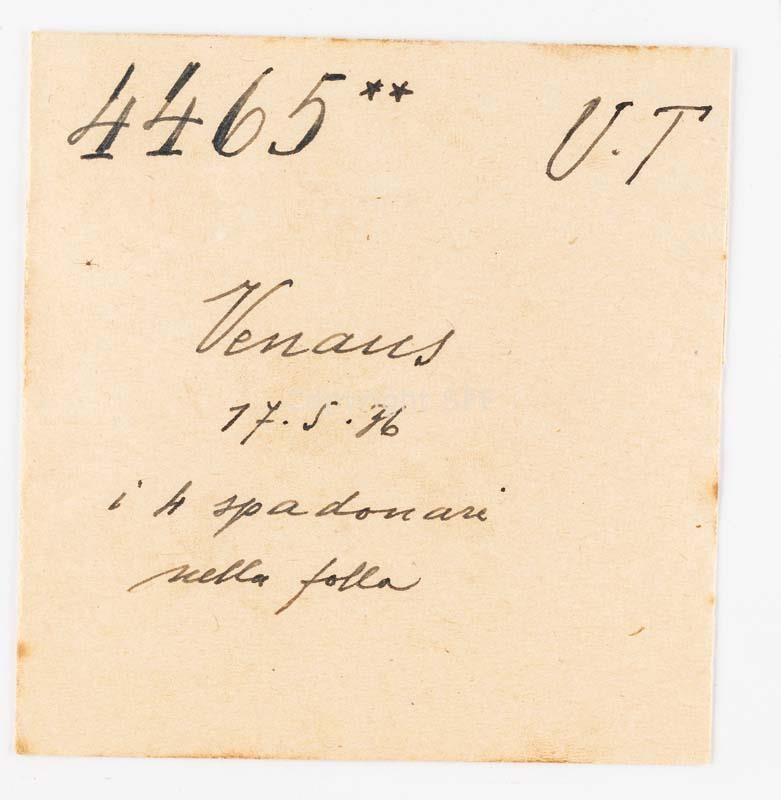 4465** U.T
Venaus
17.5.36
i 4 spadonari
nella folla